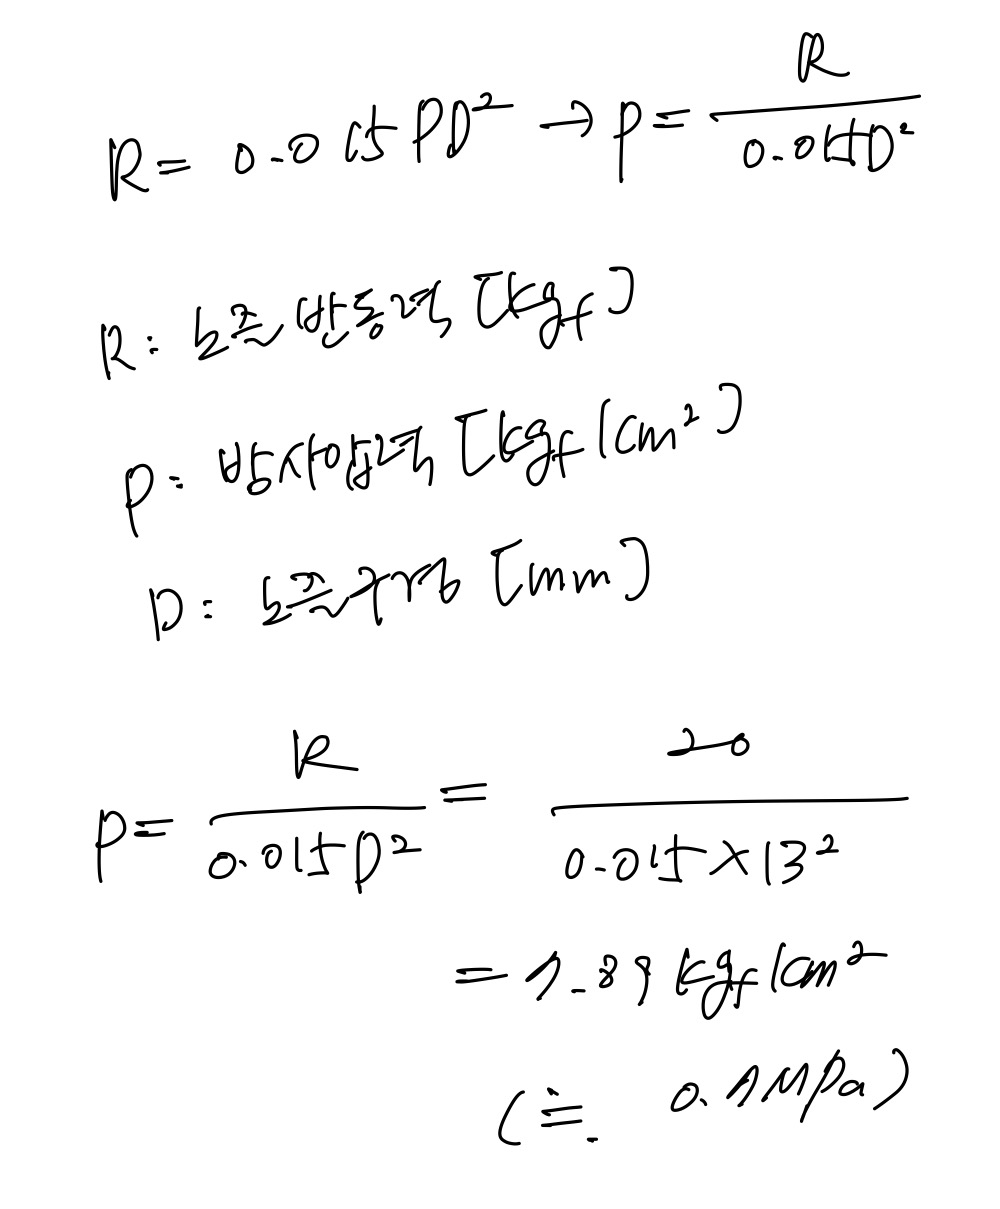 R = 0.015PD² → P = R / 0.015D²
R: 노즐 반동력 [kgf]
P: 방사압력 [kgf/cm²]
D: 노즐구경 [mm]
P = R / 0.015D² = 20 / 0.015×13²
= 7.89 kgf/cm²
(≒ 0.7MPa)